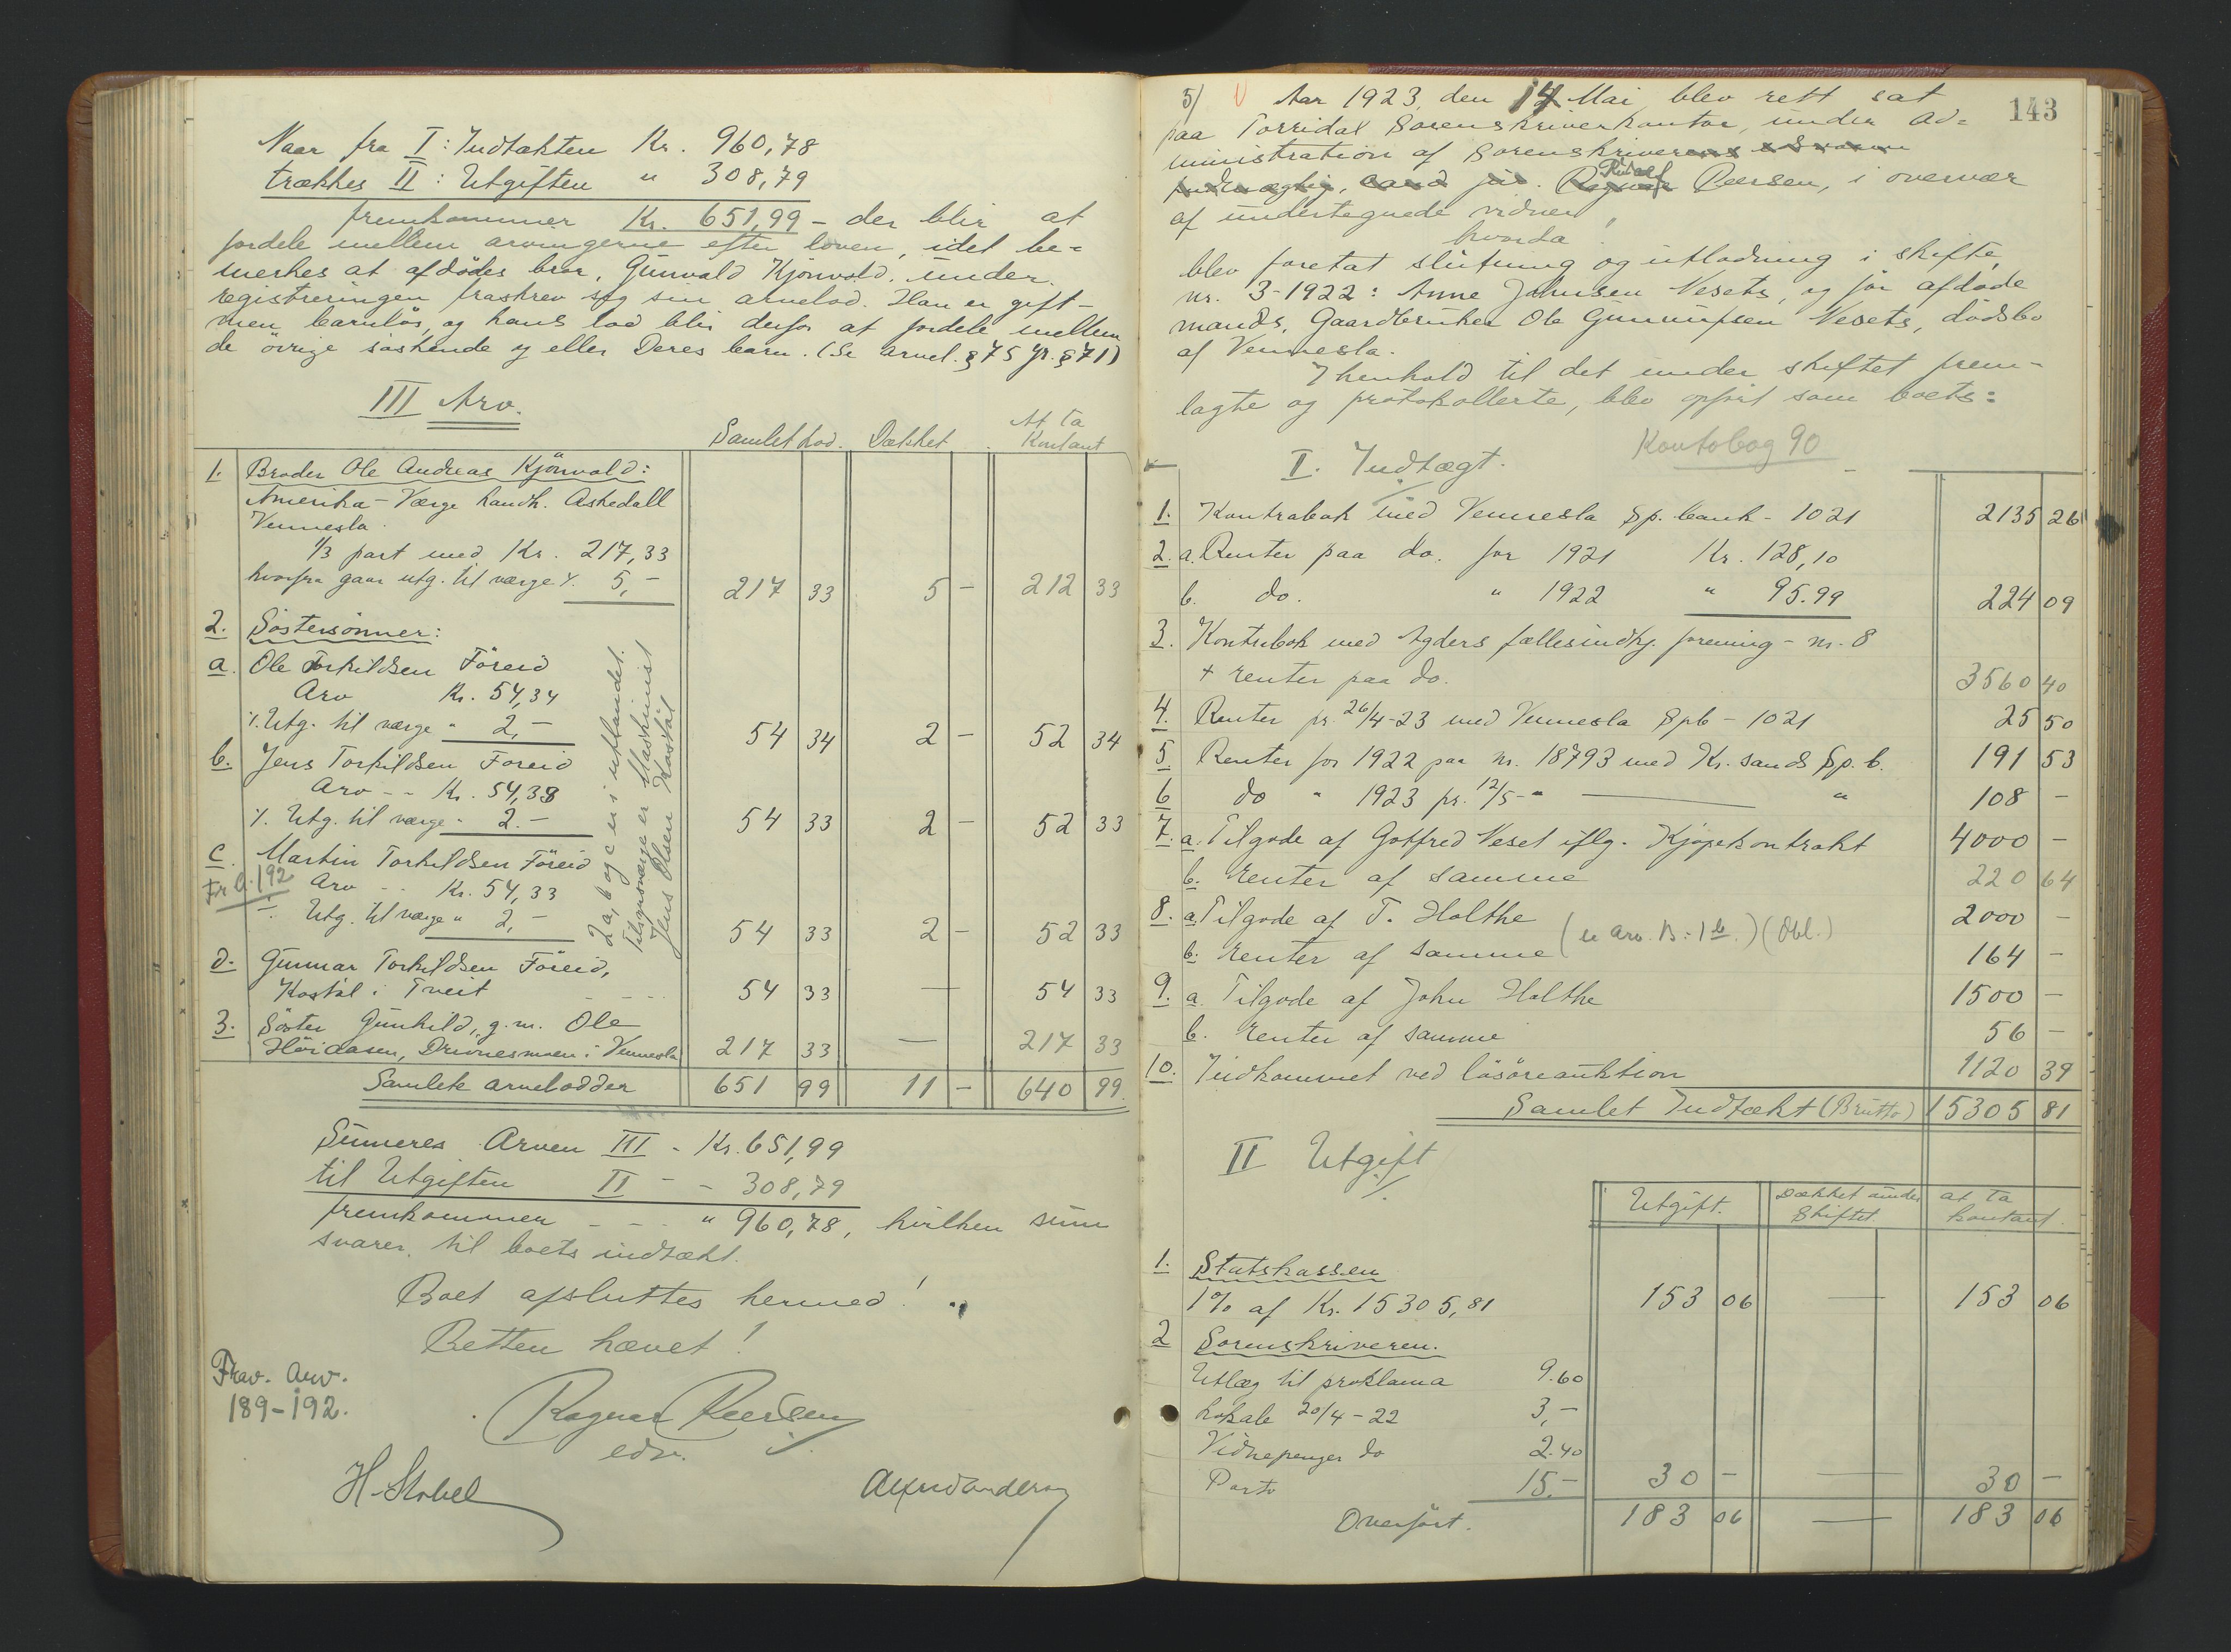 Naar fra I: Indtækten Kr. 960,78
trækkes II: Utgiften " 308,79
fremkommer Kr. 651,99 - der blir at
fordele mellem arvingerne efter loven, idet be=
merkes at afdødes bror, Gunvald Kjönvold, under
registreringen fraskrev sig sin arvelod. Han er gift-
men barnlös, og hans lod blir derfor at fordele mellem
de övrige söskende og eller Deres barn. (Se arvel. § 75 jr. § 71)
III Arv.
Samlet Lod. Dækket At ta Kontant
1. Broder Ole Andreas Kjönvold:
Amerika - Værge handh. Askedall
Vennesla.
1/3 part med Kr. 217,33
hvorfra gaar utg. til værge ٪ 5,- 217 33 5 - 212 33
2. Söstersönner:
a. Ole Torkildsen Föreid
Arv Kr. 54,34
٪ Utg. til værge " 2,- 54 34 2 - 52 34
b. Jens Torkildsen Foreid
Arv - - Kr. 54,33
٪ Utg. til værge " 2.- 54 33 2 - 52 33
c. Martin Torkildsen Föreid
Fr. A. 192 Arv - - Kr. 54,33
٪ Utg. til værge " 2,- 54 33 2 - 52 33
2a, b og c er i utlandet.
Tilsynsværge er Maskinist
Jens Olsen Kostöl
d. Gunnar Torkildsen Föreid,
Kostöl i Tveit 54 33 — 54 33
3. Söster Gunhild, g.m. Ole
Höiaasen, Drivnesmoen i Vennesla 217 33 — 217 33
Samlete arvelodder 651 99 11 - 640 99
Summeres Arven III - Kr. 651,99
til Utgiften II - - 308,79
fremkommer - - - " 960,78, hvilken sum
svarer til boets indtækt.
Boet afsluttes hermed!
Retten hævet!
Frav. Arv.
189-192.
Ragnar Peersen
edsv.
H. Stobel Alfred Andersen
143
5/ Aar 1923, den 14 Mai blev rett sat
paa Torridal Sorenskriverkontor, under Ad=
ministration af Sorenskriverens
fuldmægtig, cand jur. Ragnar Rudolf Peersen, i overvær
af undertegnede vidner,
hvorda!
blev foretat slutning og utlodning i skifte,
nr. 3-1922: Anne Johnsen Vesets, og för afdøde
mands, Gaardbruker Ole Gunnufsen Vesets, dödsbo
af Vennesla.
I henhold til det under skiftet frem-
lagte og protokollerte, blev opfört som boets:
I. Indtægt. Kontobog 90
1. Kontrabok med Vennesla Sp. bank - 1021 2135 26
2. a. Renter paa do. for 1921 Kr. 128,10
b. do. " 1922 " 95.99 224 09
3. Kontrabok med Agders fællesindkj. forening - nr. 8
+ renter paa do. 3560 40
4. Renter pr. 26/4-23 med Vennesla Spb - 1021 25 50
5 Renter for 1922 paa nr. 18793 med Kr. sands Sp. b. 191 53
6 do " 1923 pr. 12/5 - " — " 108 -
7. a. Tilgode af Gotfred Veset iflg. Kjöpekontrakt 4000 -
b. renter af samme 220 64
8. a. Tilgode af T. Holthe 2000 -
(se arv. B: 1 b.) (Obl.)
b. renter af samme 164 -
9. a. Tilgode af John Holthe 1500 -
b. renter af samme 56 -
10. Indkommet ved lösöreauktion 1120 39
Samlet Indtækt (Brutto) 15305 81
II Utgift
Utgift. Dækket under Skiftet at ta kontant.
1. Statskassen
1% af Kr. 15305,81 153 06 — 153 06
2 Sorenskriveren.
Utlæg til proklama 9.60
Lokale 20/4-22 3,-
Vidnepenger do 2.40
Porto 15.- 30 - — 30 -
Overfört. 183 06 — 183 06